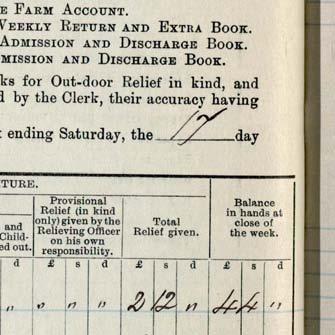 E FARM ACCOUNT.
WEEKLY RETURN AND EXTRA BOOK.
ADMISSION AND DISCHARGE BOOK.
MISSION AND DISCHARGE BOOK.
ks for Out-door Relief in kind, and
d by the Clerk, their accuracy having
ending Saturday, the 17 day
TURE.
and Child- ed out.
Provisional Relief (in kind only) given by the Relieving Officer on his own responsibility.
Total Relief given.
Balance in hands at close of the week.
d £ s d £ s d £ s d
" " " " 2 12 " 4 4 "